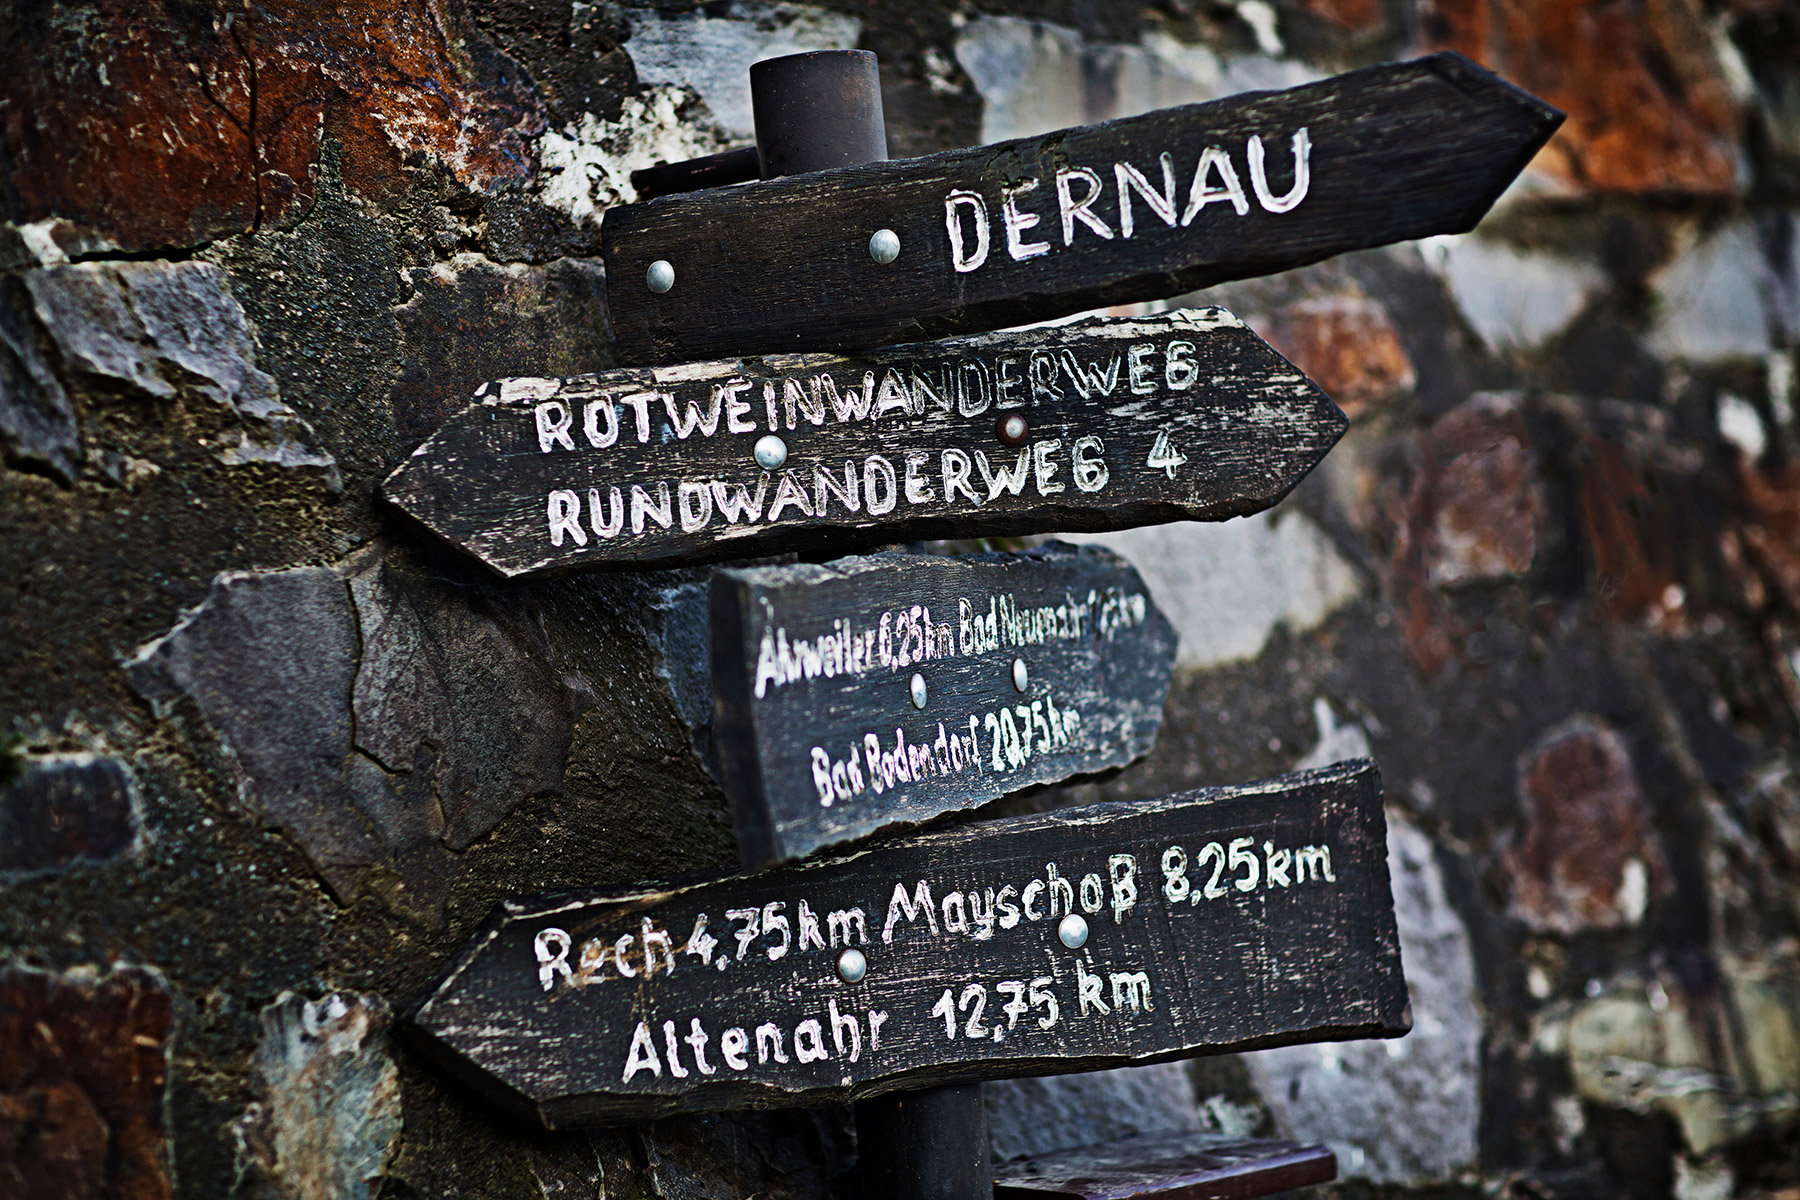 DERNAU
ROTWEINWANDERWEG
RUNDWANDERWEG 4
Ahrweiler 6,25km Bad Neuenahr
Bad Bodendorf 20,75km
Rech 4,75km Mayschoß 8,25km
Altenahr 12,75 km